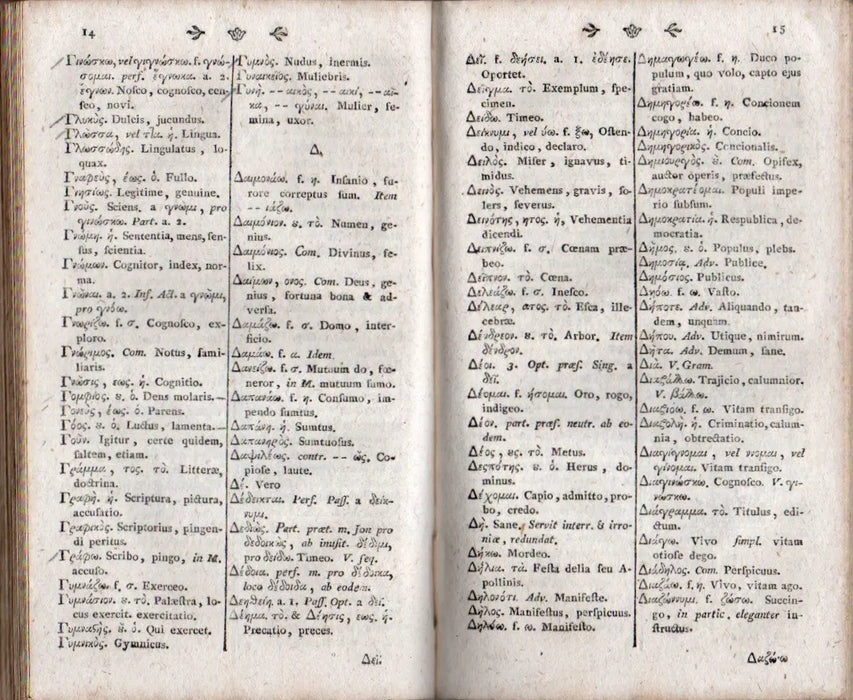 14
Γινώσκω, vel γιγνώσκω. f. γνώ-
σομαι. perf. ἔγνωκα. a. 2.
ἔγνων. Noſco, cognoſco, cen-
ſeo, novi.
Γλυκύς. Dulcis, jucundus.
Γλῶσσα, vel τ]α. ἡ. Lingua.
Γλωσσώδης. Lingulatus, lo-
quax.
Γναφεὺς, έως. ὁ. Fullo.
Γνησίως. Legitime, genuine.
Γνούς. Sciens. a γνῶμι, pro
γινώσκω. Part. a. 2.
Γνώμη. ἡ. Sententia, mens, ſen-
ſus, ſcientia.
Γνώμων. Cognitor, index, nor-
ma.
Γνῶναι. a. 2. Inf. Act. a γνῶμι,
pro γνόω.
Γνωρίζω. f. σ. Cognoſco, ex-
ploro.
Γνώριμος. Com. Notus, fami-
liaris.
Γνῶσις, εως. ἡ. Cognitio.
Γομφίος. ȣ. ὁ. Dens molaris.
Γονεὺς, έως. ὁ. Parens.
Γόος. ȣ. ὁ. Luctus, lamenta.
Γοῦν. Igitur, certe quidem,
ſaltem, etiam.
Γράμμα, τος. τὸ. Litteræ,
doctrina.
Γραφὴ. ἡ. Scriptura, pictura,
accuſatio.
Γραφικὸς. Scriptorius, pingen-
di peritus.
Γράφω. Scribo, pingo, in M.
accuſo.
Γυμνάζω. f. σ. Exerceo.
Γυμνάσιον. ȣ. τὸ. Palæſtra, lo-
cus exercit. exercitatio.
Γυμναςὴς. ȣ. ὁ. Qui exercet.
Γυμνικὸς. Gymnicus.
Γυμνὸς. Nudus, inermis.
Γυναικεῖος. Muliebris.
Γυνὴ. -- αικὸς, -- αικὶ, -- αῖ-
κα, -- γύναι. Mulier, fe-
mina, uxor.
Δ.
Δαιμονάω. f. η. Inſanio, fu-
rore correptus ſum. Item
-- ιάζω.
Δαιμόνιον. ȣ. τὸ. Numen, ge-
nius.
Δαιμόνιος. Com. Divinus, fe-
lix.
Δαίμων, ονος. Com. Deus, ge-
nius, fortuna bona & ad-
verſa.
Δαμάζω. f. σ. Domo, inter-
ficio.
Δαμάω. f. α. Idem.
Δανείζω. f. σ. Mutuum do, fœ-
neror, in M. mutuum ſumo.
Δαπανάω. f. η. Conſumo, im-
pendo ſumtus.
Δαπάνη. ἡ. Sumtus.
Δαπανηρὸς. Sumtuoſus.
Δαψιλέως. contr. -- ῶς, Co-
pioſe, laute.
Δέ. Vero
Δέδεικται. Perſ. Paſſ. a δείκ-
νυμι.
Δεδιὼς. Part. præt. m. Jon pro
δεδοικὼς, ab inuſit. δίδιμι,
pro δείδω. Timeo. V. ſeq.
Δέδοια. perf. m. pro δέδοικα,
loco δέδοιδα, ab eodem.
Δεηθείη. a. 1. Paſſ. Opt. a δεῖ.
Δέημα. τὸ. & Δέησις, εως. ἡ.
Precatio, preces.
Δεῖ.
15
Δεῖ. f. δεήσει. a. 1. ἐδέησε.
Oportet.
Δεῖγμα. τὸ. Exemplum, ſpe-
cimen.
Δείδω. Timeo.
Δείκνυμι, vel ύω. f. ξω, Oſten-
do, indico, declaro.
Δειλὸς. Miſer, ignavus, ti-
midus.
Δεινὸς. Vehemens, gravis, ſo-
lers, ſeverus.
Δεινότης, ητος. ἡ, Vehementia
dicendi.
Δειπνίζω. f. σ. Cœnam præ-
beo.
Δεῖπνον. τὸ. Cœna.
Δελεάζω. f. σ. Ineſco.
Δέλεαρ, ατος. τὸ. Eſca, ille-
cebræ.
Δένδρεον. ȣ. τὸ. Arbor. Item
δένδρον.
Δέοι. 3. Opt. præſ. Sing. a
δεῖ.
Δέομαι. f. ήσομαι. Oro, rogo,
indigeo.
Δέον. part. præſ. neutr. ab eo-
dem.
Δέος, ȣς. τὸ. Metus.
Δεσπότης. ȣ. ὁ. Herus, do-
minus.
Δέχομαι. Capio, admitto, pro-
bo, credo.
Δὴ. Sane. Servit interr. & irro-
niæ, redundat.
Δήκω. Mordeo.
Δήλια. τὰ. Feſta delia ſeu A-
pollinis.
Δηλονότι. Adv. Manifeſte.
Δῆλος. Manifeſtus, perſpicuus.
Δηλόω. f. ω. Manifeſto.
Δημαγωγέω. f. η. Duco po-
pulum, quo volo, capto ejus
gratiam.
Δημηγορέω. f. η. Concionem
cogo, habeo.
Δημηγορία. ἡ. Concio.
Δημηγορικὸς. Concionalis.
Δημιουργὸς. ȣ. Com. Opifex,
auctor operis, præfectus.
Δημοκρατέομαι. Populi impe-
rio ſubſum.
Δημοκρατία. ἡ. Reſpublica, de-
mocratia.
Δῆμος. ȣ. ὁ. Populus, plebs.
Δημοσίᾳ. Adv. Publice.
Δημόσιος. Publicus.
Δηόω. f. ω. Vaſto.
Δήποτε. Adv. Aliquando, tan-
dem, unquam.
Δήπου. Adv. Utique, nimirum.
Δῆτα. Adv. Demum, ſane.
Διὰ. V. Gram.
Διαβάλλω. Trajicio, calumnior.
V. βάλλω.
Διαβιόω. f. ω. Vitam tranſigo.
Διαβολὴ. ἡ. Criminatio, calum-
nia, obtrectatio.
Διαγίγνομαι, vel νομαι, vel
γίνομαι. Vitam tranſigo.
Διαγινώσκω. Cognoſco. V. γι-
νώσκω.
Διάγραμμα. τὸ. Titulus, edi-
ctum.
Διάγω. Vivo ſimpl. vitam
otioſe dego.
Διάδηλος. Com. Perſpicuus.
Διαζάω. f. η. Vivo, vitam ago.
Διαζώννυμι. f. ζώσω. Succin-
go, in partic. eleganter in-
ſtructus.
Διαζώω